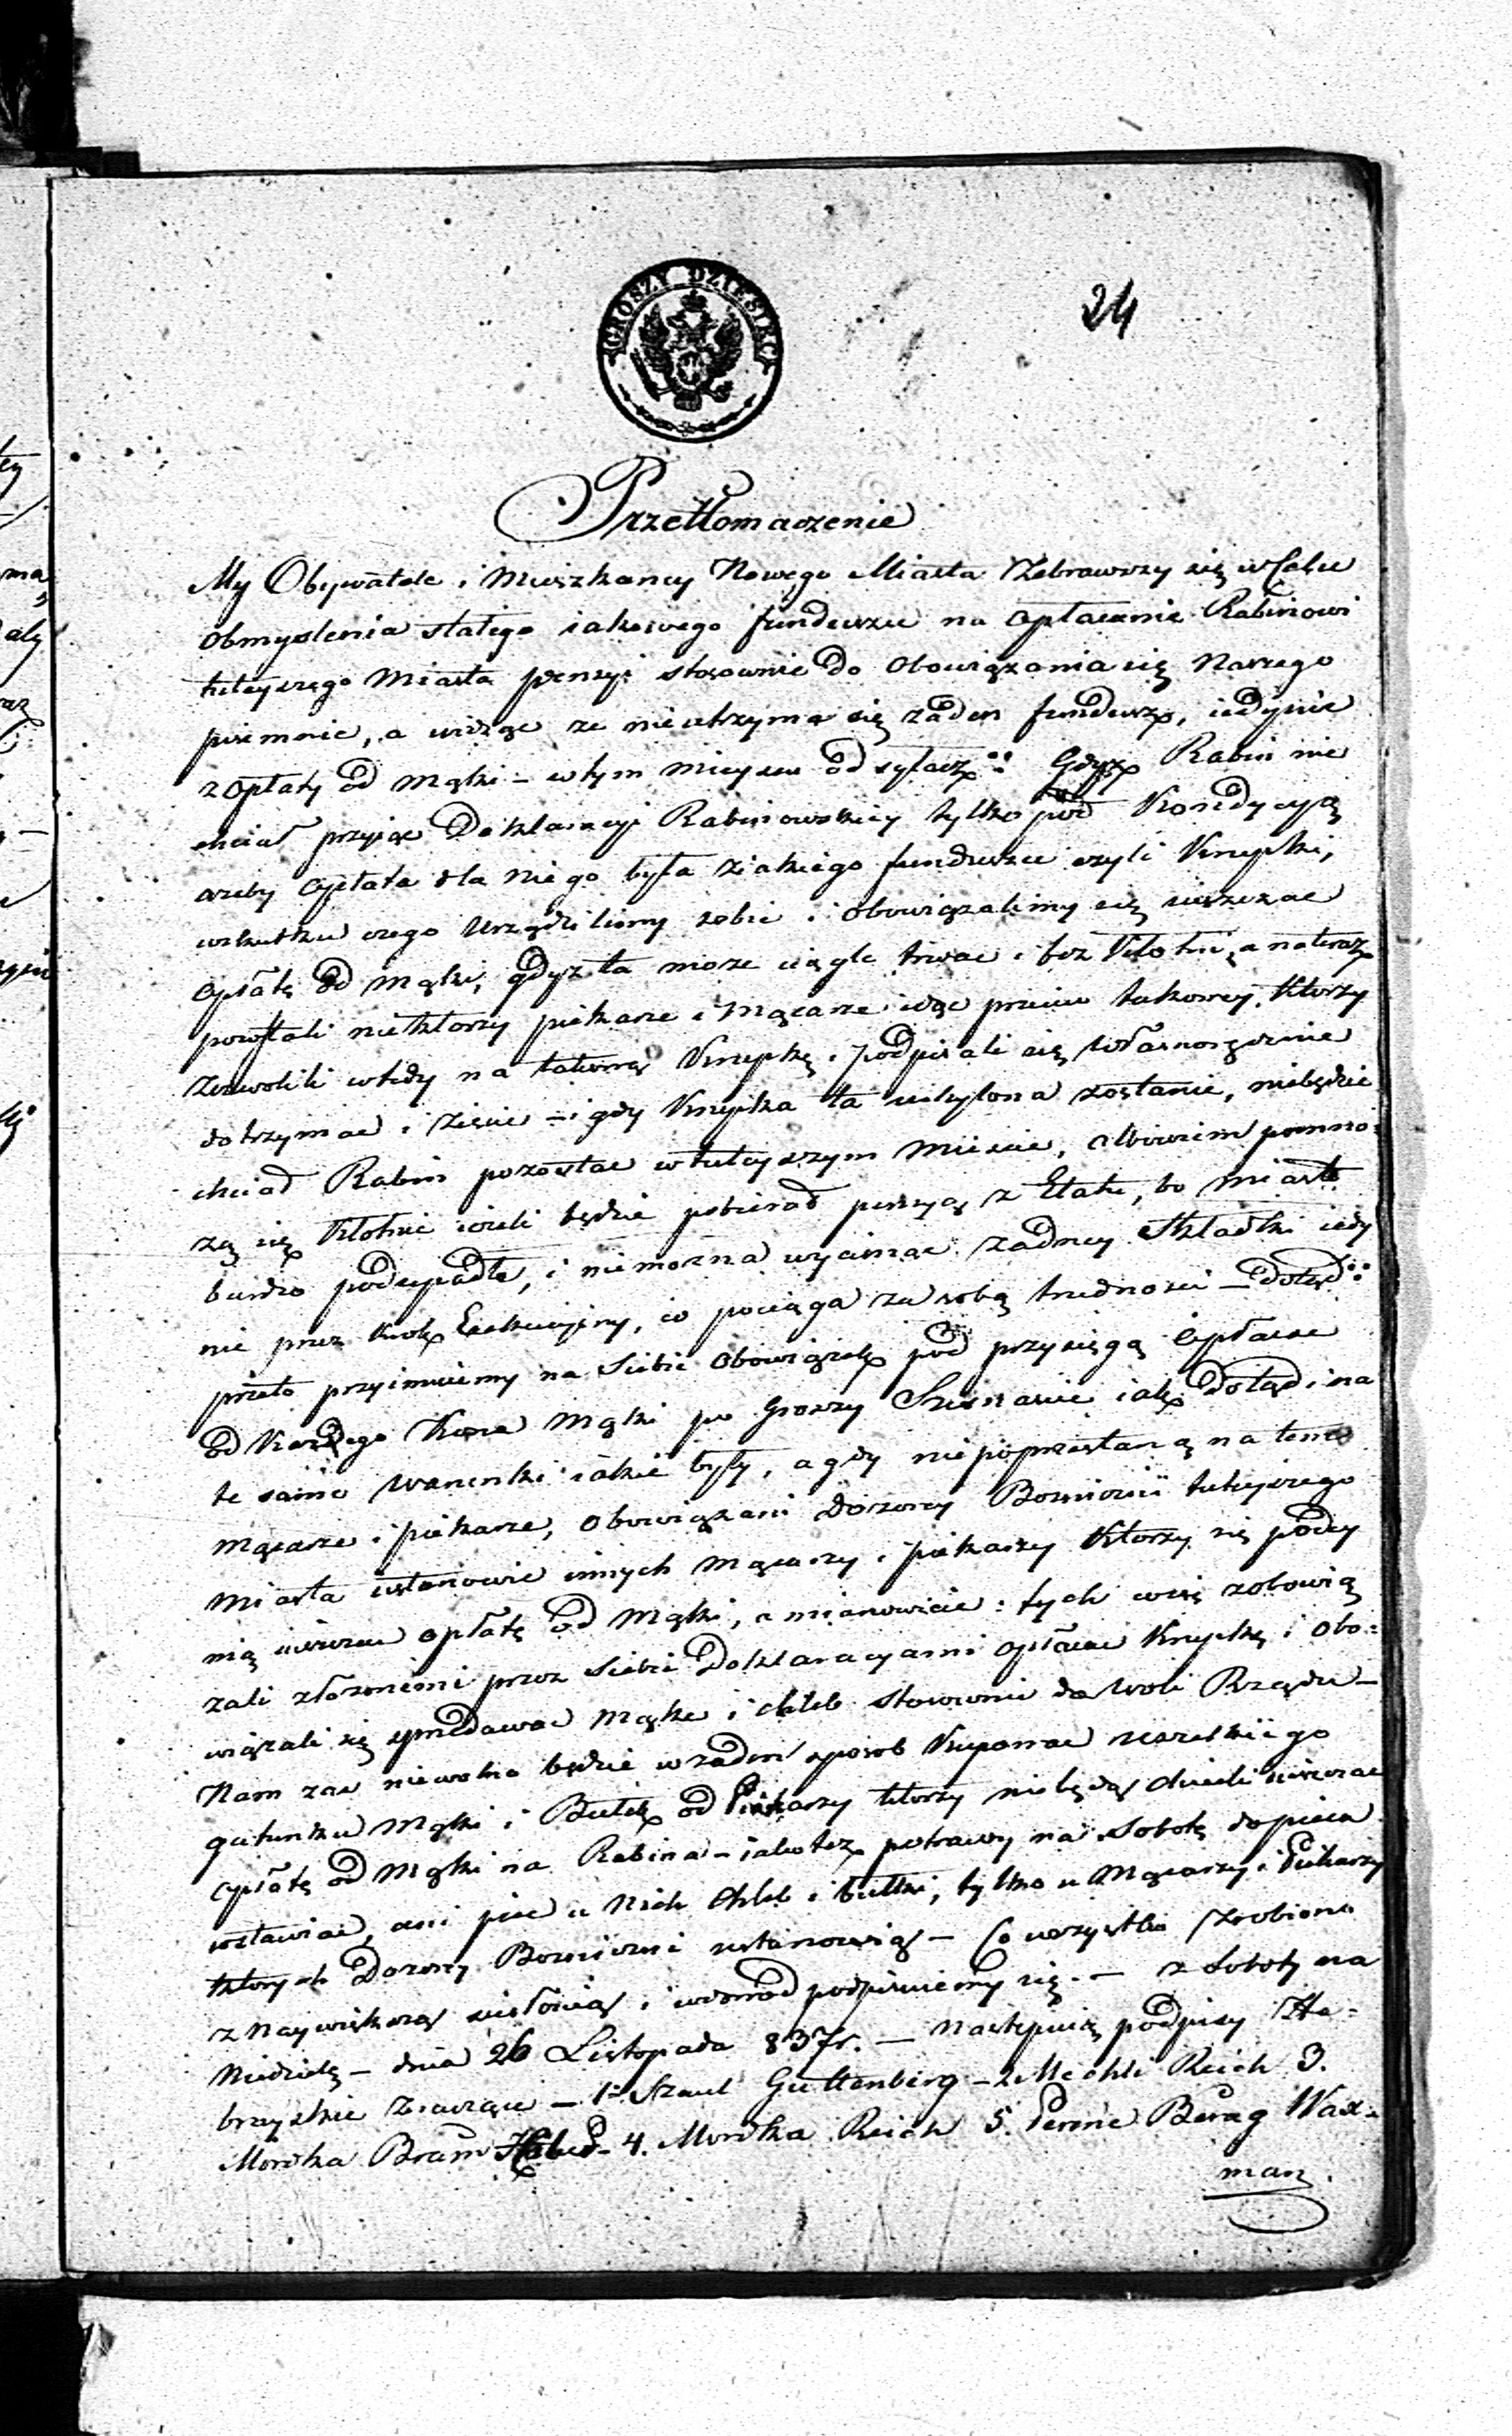 GROSZY DZIESIĘĆ
24
Przetłomaczenie
My Obywatele i Mieszkancy Nowego Miasta Zebrawszy się w Celu
obmyslenia stałego iakowego funduszu na opłacanie Rabinowi
tuteyszego Miasta pensyi stosownie do obowiązania się Naszego
pisemnie, a widząc ze nieutrzyma się żaden fundusz, iedynie
z opłaty od mąki – w tym mieyscu odsyłacz Gdyż Rabin nie
chciał przyiąć Deklaracyi Rabinowskiey tylko pod Kondycyą
azeby opłata dla niego była ziakiego funduszu czyli Krupki,
wskutku czego Urządzilismy sobie i obowiązalismy się uiszczac
opłatę od mąki, gdyż ta moze ciągle trwac i bez kłotni, a na teraz
powstali niektorzy piekarze i mącarze idąc przeciw takowey, ktorzy
zezwolili wtedy na takową Krupkę i podpisali się własnoręcznie
dotrzymac i ziscic – i gdy Krupka ta uchylona zostanie, niebędzie
chciał Rabin pozostac w tuteyszym Miescie, albowiem pomno=
żą się kłotnie iezeli będzie pobierał pensyą z Etatu, bo Miasto
bardzo podupadło, i niemozna wycisnąc zadney Składki iedy
nie przez krok Exekucyiny, co pociąga za sobą trudnosci – dotąd
przeto przyimuiemy na siebie obowiązek pod przysięgą opłacac
od Kazdego Korca Mąki po groszy Szesnascie iak dotąd i na
te same warunki iakie były, a gdy niepoprzestaną na tem
mącarze i piekarze, obowiązani Dozorcy Boznicy tuteyszego
Miasta ustanowic innych mącarzy i piekarzy ktorzy się podey
mią uiszczac opłatę od mąki, a mianowicie: tych co się zobowią
zali złożonemi przez siebie Deklaracyami opłacac Krupkę i obo=
wiązali się sprzedawac mąkę i chleb stosownie do woli Rządu –
Nam zas niewolno będzie w zaden sposob kupowac wszelkiego
gatunku mąki i Bułek od Piekarzy ktorzy niebędą chcieli uiszczac
opłatę od mąki na Rabina – iako tez potrawy na Sobotę do pieca
wstawiac, ani piec u Nich chleb i bułki, tylko u Mącarzy i Piekarzy
ktorych Dozorcy Boznicy ustanowią – Co wszystko zrobiono
z Naywiększą scisłością i wdowod podpisuiemy się. – z Soboty na
Niedzielę – dnia 26 Listopada 837 r. – Następuią podpisy He=
brayskie znaczące – 1o Szaul Guttenberg – 2 Mechli Reich 3.
Mordka Bram – 4. Mordka Reich 5. Berag Wax=
man.